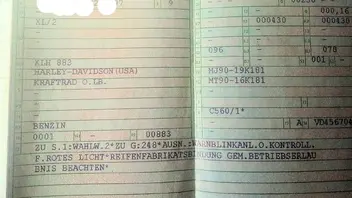 XL/2
000,16
000430 000430
096 078
001
XLH 883
HARLEY-DAVIDSON(USA) MJ90-19K181
KRAFTRAD O.LB. MT90-16K181
C560/1*
BENZIN A VD456704
0001 00883
ZU S.1:WAHLW.2*ZU G:248*AUSN.:WARNBLINKANL.O.KONTROLL.
F.ROTES LICHT*REIFENFABRIKATSBINDUNG GEM.BETRIEBSERLAU
BNIS BEACHTEN*